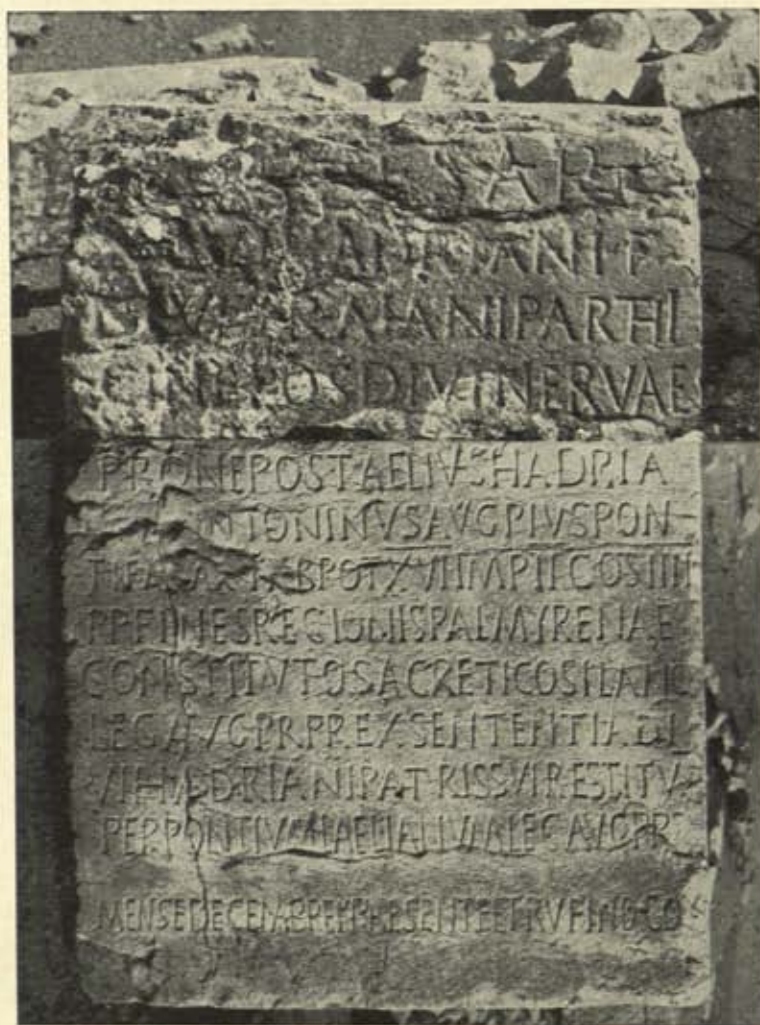 ADRIANI F
TRAIANI PARTHI
CI NEPOS DIVI NERVAE
PRONEPOS T AELIVS HADRIA
ANTONINVS AVG PIVS PON
POT XVI IMP II COS IIII
P P FINES REGIONIS PALMYRENAE
CONSTITVTOS A CRETICO SILANO
LEG AVG PR PR EX SENTENTIA DI
VI HADRIANI PATRIS SVI RESTITV
PER PONTIVM LAELIANVM LEG AVG PR
MENSE DECEMBRE PRAESENTE ET RVFINO CO